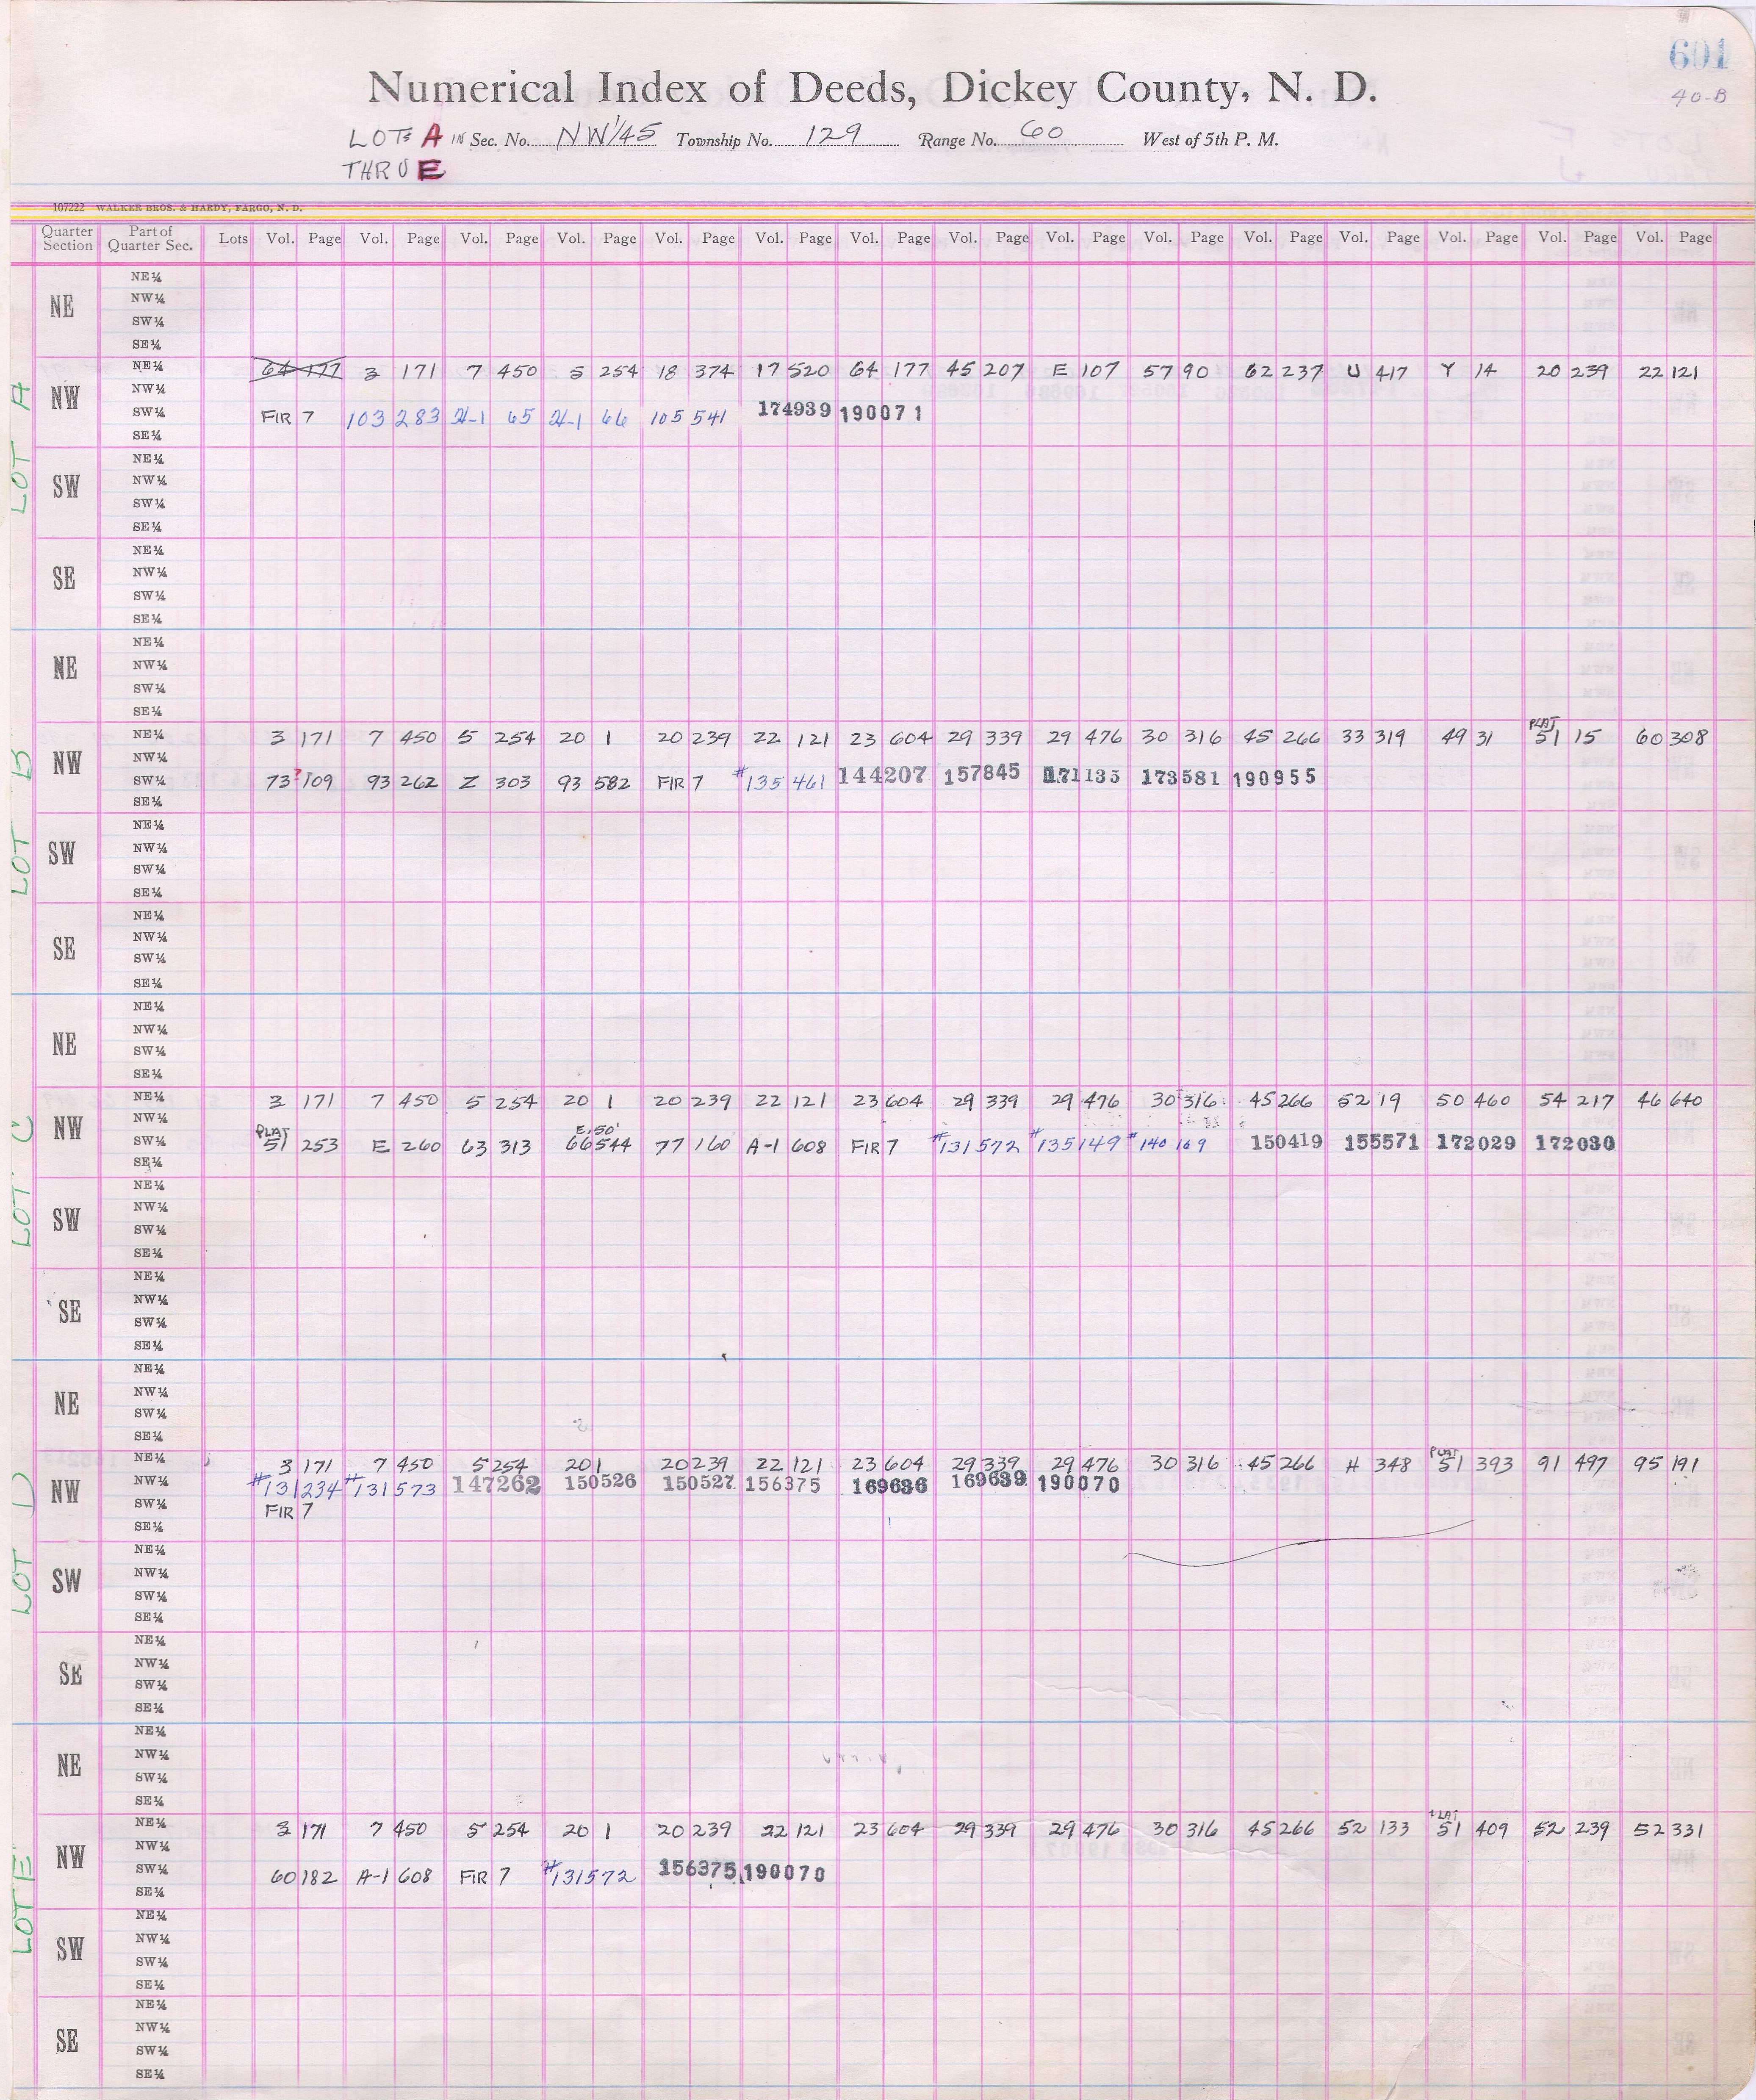 601
40-B
Numerical Index of Deeds, Dickey County, N. D.
LOTS A IN Sec. No. NW 1/4 5 Township No. 129 Range No. 60 West of 5th P. M.
THRU E
107222 WALKER BROS. & HARDY, FARGO, N. D.
Quarter Section Part of Quarter Sec. Lots Vol. Page Vol. Page Vol. Page Vol. Page Vol. Page Vol. Page Vol. Page Vol. Page Vol. Page Vol. Page Vol. Page Vol. Page Vol. Page Vol. Page Vol. Page
LOT A
NE
NE¼
NW¼
SW¼
SE¼
NW
NE¼ 64 177 3 171 7 450 5 254 18 374 17 520 64 177 45 207 E 107 57 90 62 237 U 417 Y 14 20 239 22 121
NW¼
SW¼ FIR 7 103 283 H-1 65 H-1 66 105 541 174939 190071
SE¼
SW
NE¼
NW¼
SW¼
SE¼
SE
NE¼
NW¼
SW¼
SE¼
LOT B
NE
NE¼
NW¼
SW¼
SE¼
NW
NE¼ 3 171 7 450 5 254 20 1 20 239 22 121 23 604 29 339 29 476 30 316 45 266 33 319 49 31 PLAT 51 15 60 308
NW¼
SW¼ 73 ? 109 93 262 Z 303 93 582 FIR 7 #135 461 144207 157845 171135 173581 190955
SE¼
SW
NE¼
NW¼
SW¼
SE¼
SE
NE¼
NW¼
SW¼
SE¼
LOT C
NE
NE¼
NW¼
SW¼
SE¼
NW
NE¼ 3 171 7 450 5 254 20 1 20 239 22 121 23 604 29 339 29 476 30 316 45 266 52 19 50 460 54 217 46 640
NW¼
SW¼ PLAT 51 253 E 260 63 313 E. 50' 66 544 77 160 A-1 608 FIR 7 #131572 #135149 #140 169 150419 155571 172029 172030
SE¼
SW
NE¼
NW¼
SW¼
SE¼
SE
NE¼
NW¼
SW¼
SE¼
LOT D
NE
NE¼
NW¼
SW¼
SE¼
NW
NE¼ 3 171 7 450 5 254 20 1 20 239 22 121 23 604 29 339 29 476 30 316 45 266 H 348 PLAT 51 393 91 497 95 191
NW¼ #131234 #131573 147262 150526 150527 156375 169636 169639 190070
SW¼ FIR 7
SE¼
SW
NE¼
NW¼
SW¼
SE¼
SE
NE¼
NW¼
SW¼
SE¼
LOT E
NE
NE¼
NW¼
SW¼
SE¼
NW
NE¼ 3 171 7 450 5 254 20 1 20 239 22 121 23 604 29 339 29 476 30 316 45 266 52 133 PLAT 51 409 52 239 52 331
NW¼
SW¼ 60 182 A-1 608 FIR 7 #131572 156375 190070
SE¼
SW
NE¼
NW¼
SW¼
SE¼
SE
NE¼
NW¼
SW¼
SE¼